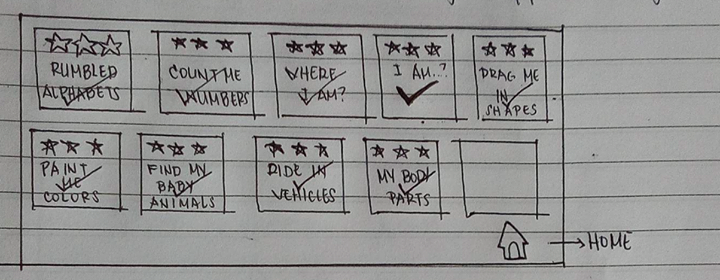 RUMBLED
ALPHABETS
COUNT ME
NUMBERS
WHERE
I AM?
I AM..?
DRAG ME
IN
SHAPES
PAINT
ME
COLORS
FIND MY
BABY
ANIMALS
RIDE IN
VEHICLES
MY BODY
PARTS
HOME